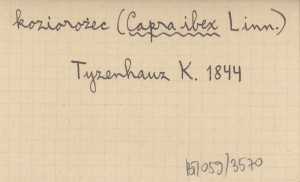 koziorożec (Capra ibex Linn.)
Tyzenhauz K. 1844
B/059/3570